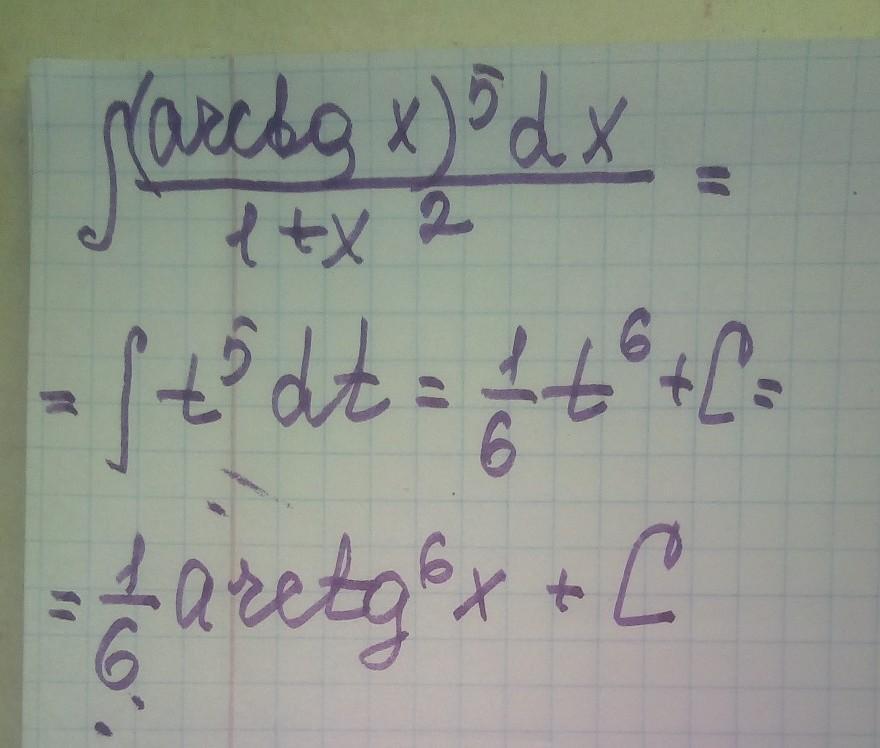 ∫ (arctg x)⁵ dx / 1+x² =
= ∫ t⁵ dt = 1/6 t⁶ + C =
= 1/6 arctg⁶ x + C